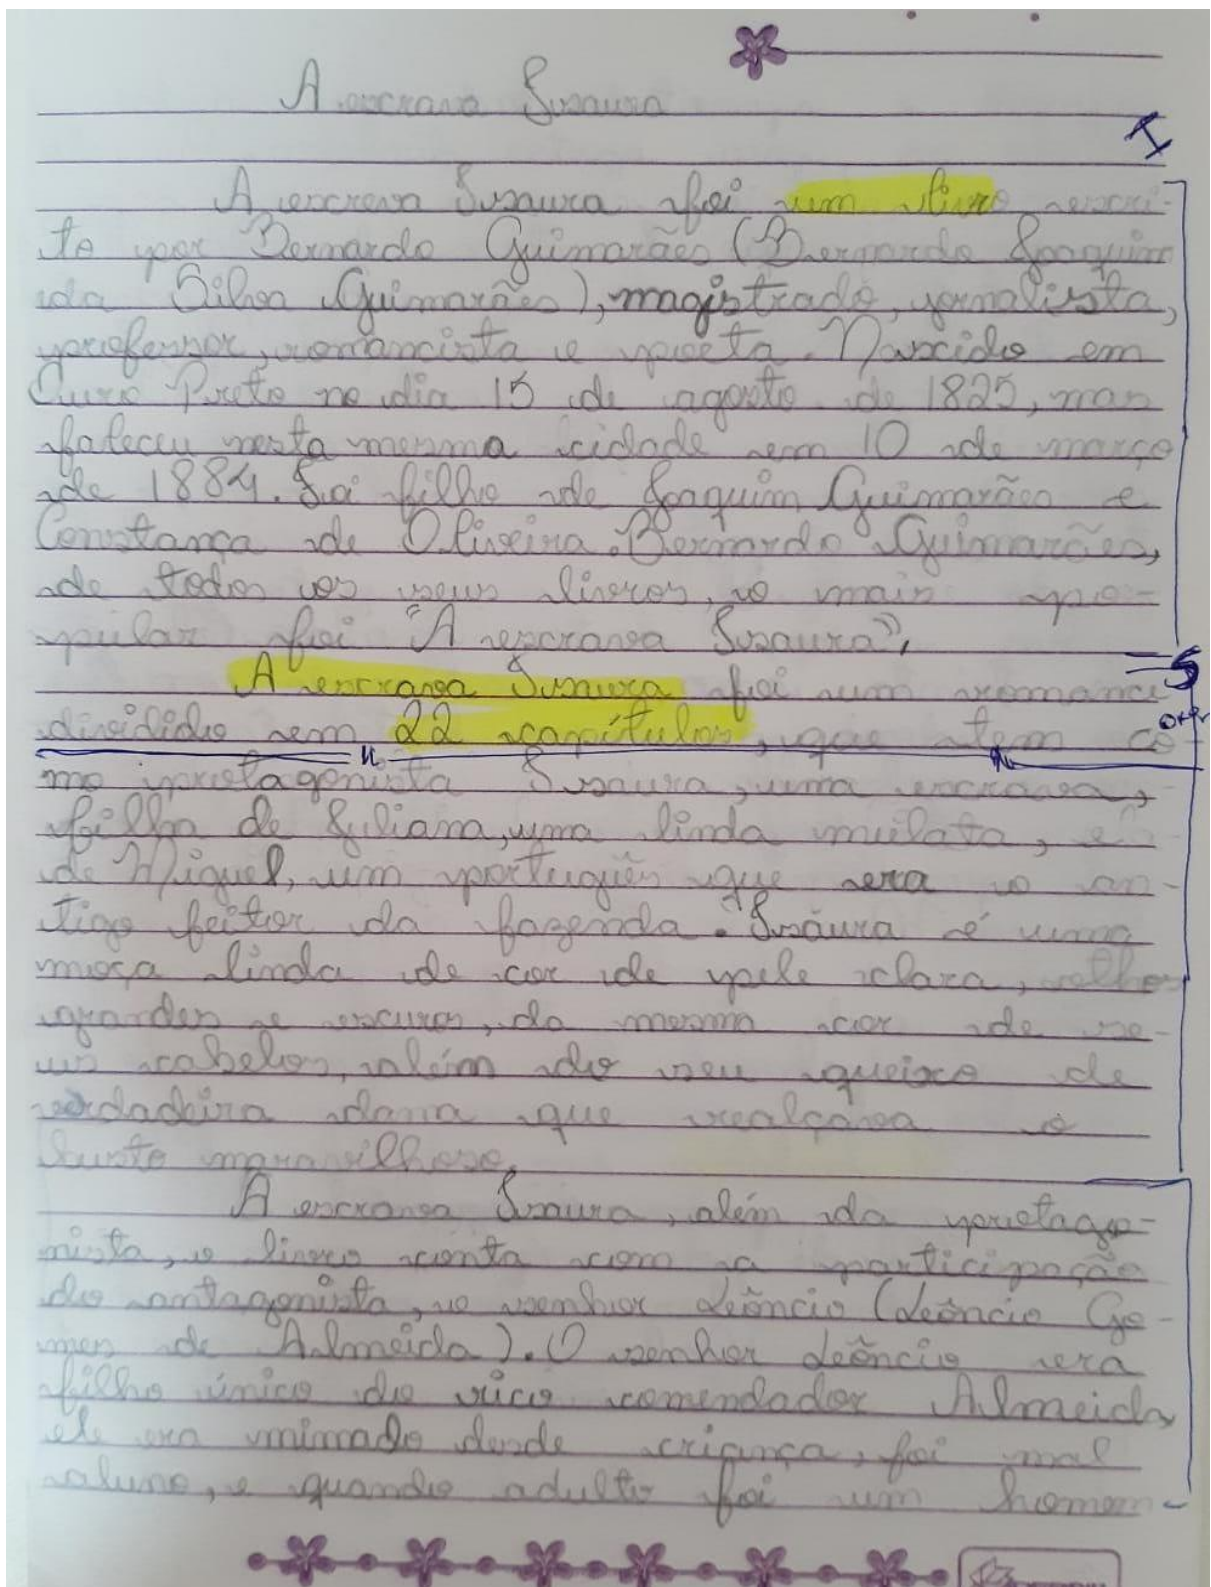 A escrava Isaura
I
A escrava Isaura foi um livro escri-
to por Bernardo Guimarães (Bernardo Joaquim
da Silva Guimarães), magistrado, jornalista,
professor, romancista e poeta. Nascido em
Ouro Preto no dia 15 de agosto de 1825, mas
faleceu nesta mesma cidade em 10 de março
de 1884. Foi filho de Joaquim Guimarães e
Constança de Oliveira. Bernardo Guimarães,
de todos os seus livros, o mais po-
pular foi "A escrava Isaura".
A escrava Isaura foi um romance
dividido em 22 capítulos, que tem co-
mo protagonista Isaura, uma escrava,
filha de Juliana, uma linda mulata, e
de Miguel, um português que era o an-
tigo feitor da fazenda. Isaura é uma
moça linda de cor de pele clara, olhos
grandes e escuros, da mesma cor de se-
us cabelos, além do seu queixo de
verdadeira dama que realçava o
busto maravilhoso.
A escrava Isaura, além da protago-
nista, o livro conta com a participação
do antagonista, o senhor Leôncio (Leôncio Go-
mes de Almeida). O senhor Leôncio era
filho único do rico comendador Almeida,
ele era mimado desde criança, foi mal
aluno, e quando adulto foi um homem